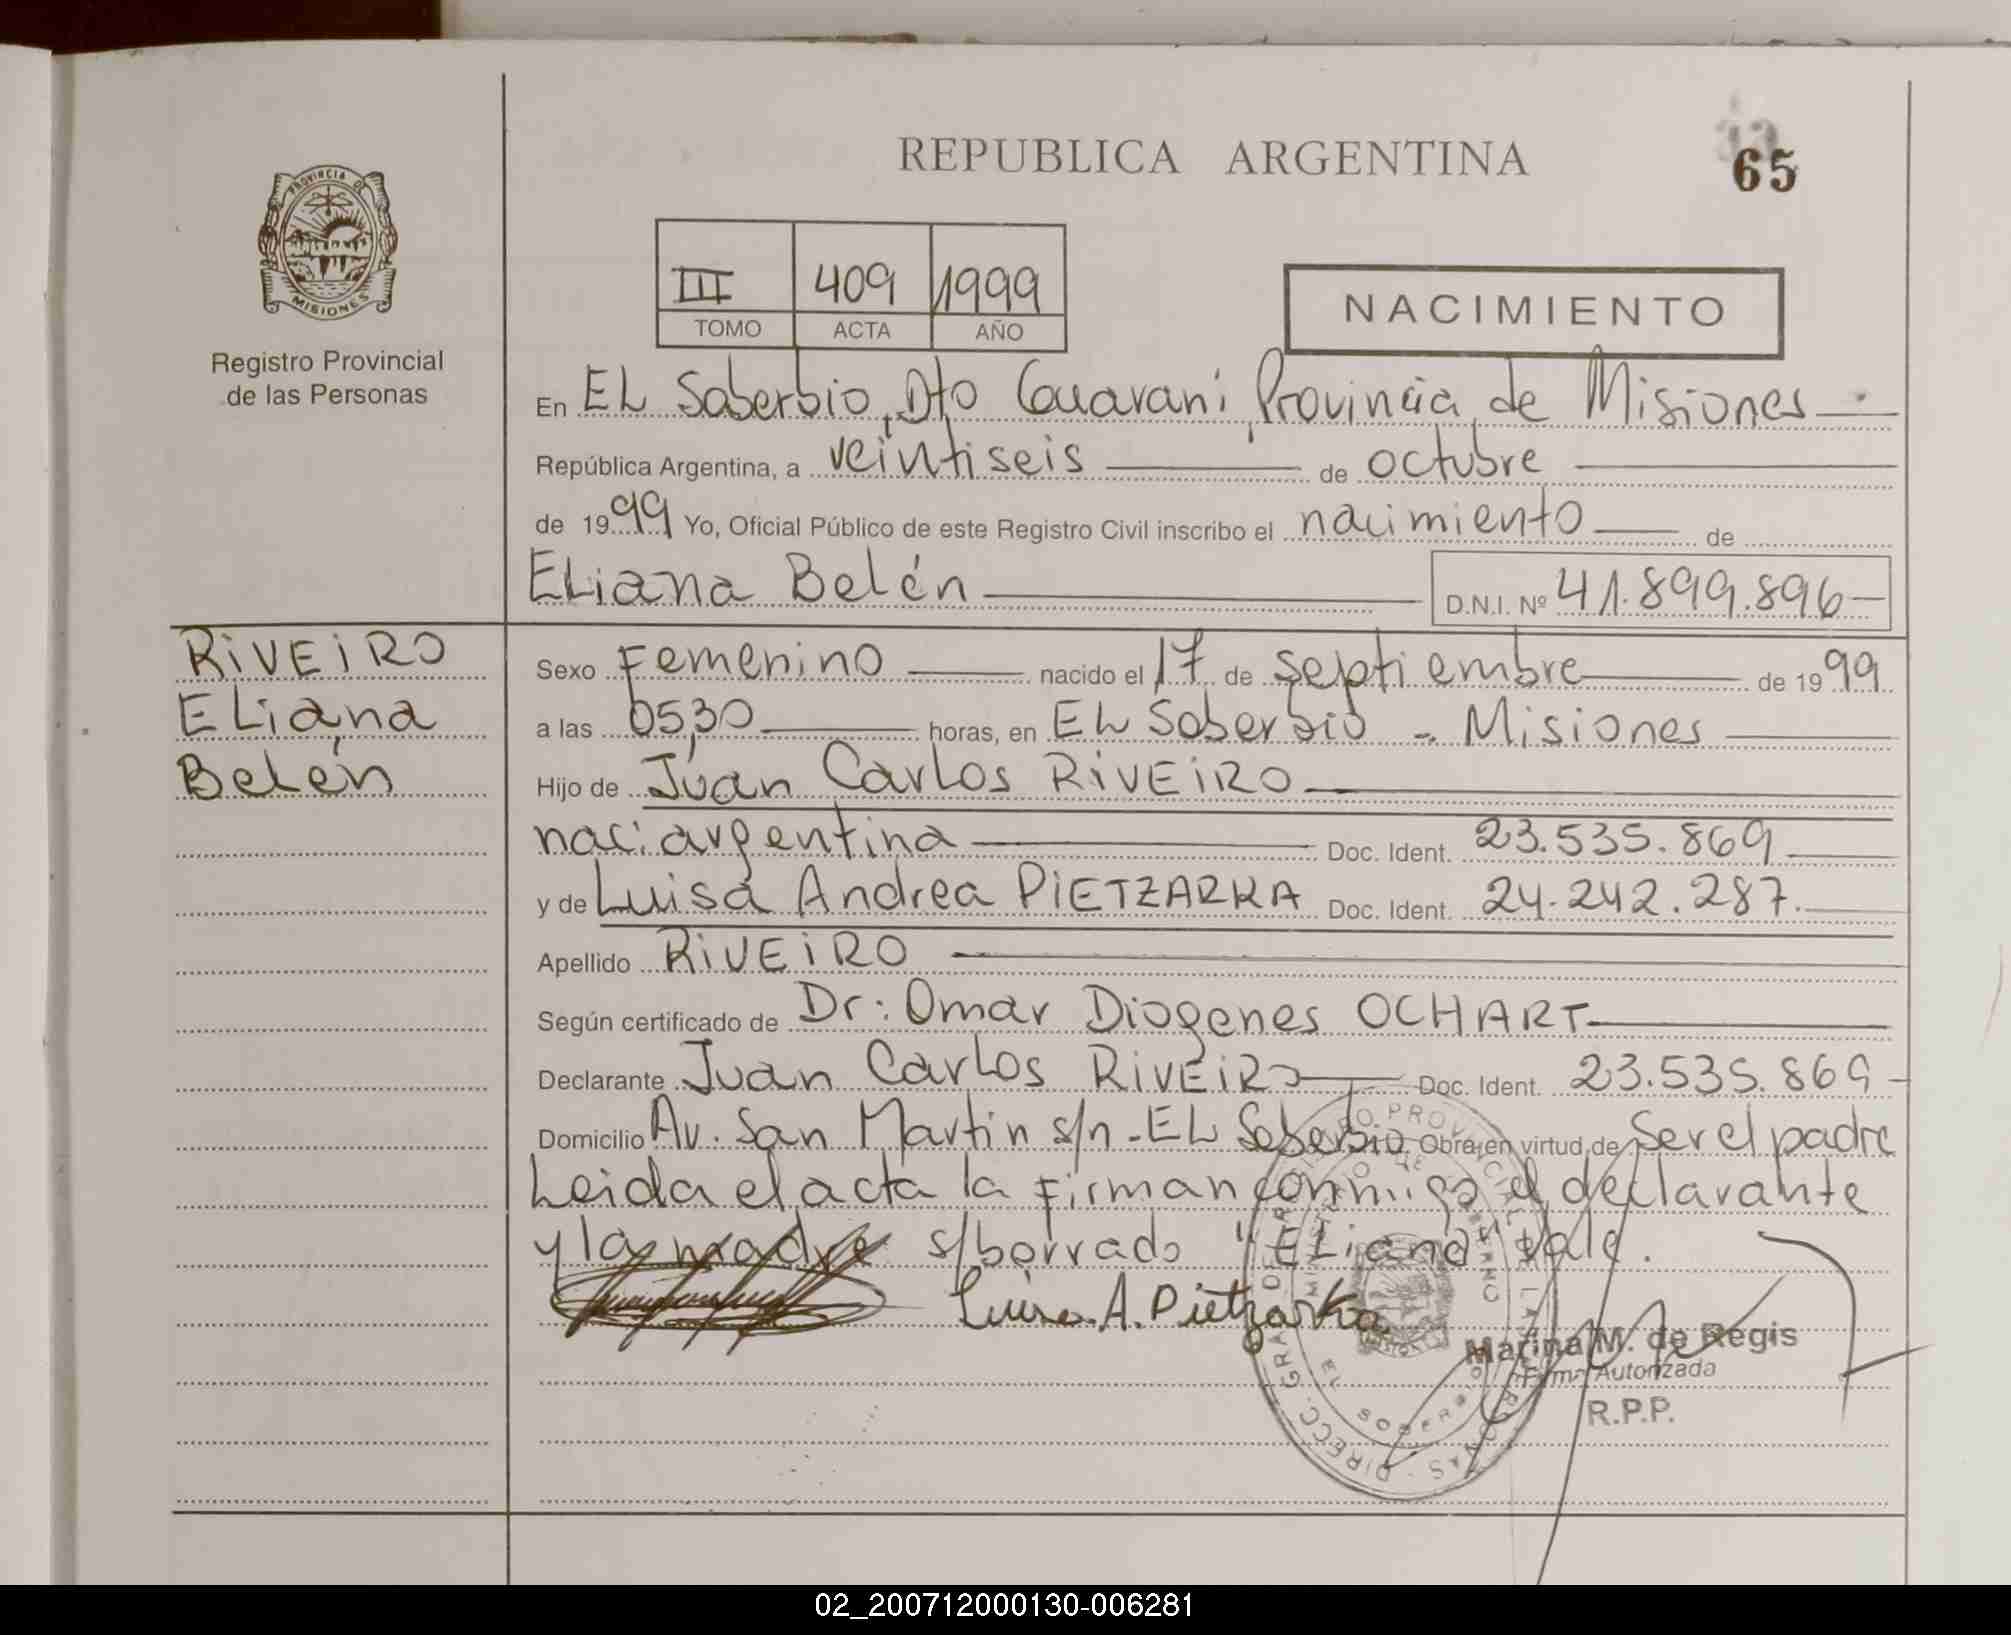 REPUBLICA ARGENTINA
65
PROVINCIA DE
MISIONES
Registro Provincial
de las Personas
III 409 1999
TOMO ACTA AÑO
NACIMIENTO
En EL Soberbio, Dto Guaraní, Provincia de Misiones
República Argentina, a veintiseis de octubre
de 1999 Yo, Oficial Público de este Registro Civil inscribo el nacimiento de
ELiana Belén D.N.I. Nº 41.899.896
RIVEIRO
ELiana
Belén
Sexo Femenino nacido el 17 de septiembre de 1999
a las 05,30 horas, en EL Soberbio - Misiones
Hijo de Juan Carlos RIVEIRO
naci argentina Doc. Ident. 23.535.869
y de Luisa Andrea PIETZARKA Doc. Ident. 24.242.287.
Apellido RIVEIRO
Según certificado de Dr: Omar Diogenes OCHART
Declarante Juan Carlos RIVEIRO Doc. Ident. 23.535.869
Domicilio Av. San Martin s/n - EL Soberbio Obra en virtud de ser el padre
Leida el acta la firman conmigo el declarante
y la madre s/borrado "ELiana" vale.
Luisa A. Pietzarka
Marina M. de Regis
Firma Autorizada
R.P.P.
02_200712000130-006281